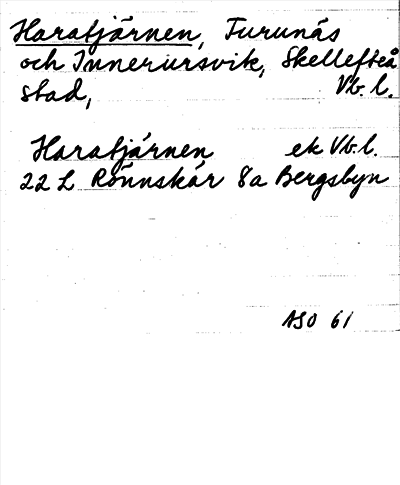 Haratjärnen, Turunäs
och Innerursvik, Skellefteå
stad, Vb. l.
Haratjärnen ek Vb. l.
22 L Rönnskär 8a Bergsbyn
ASO 61